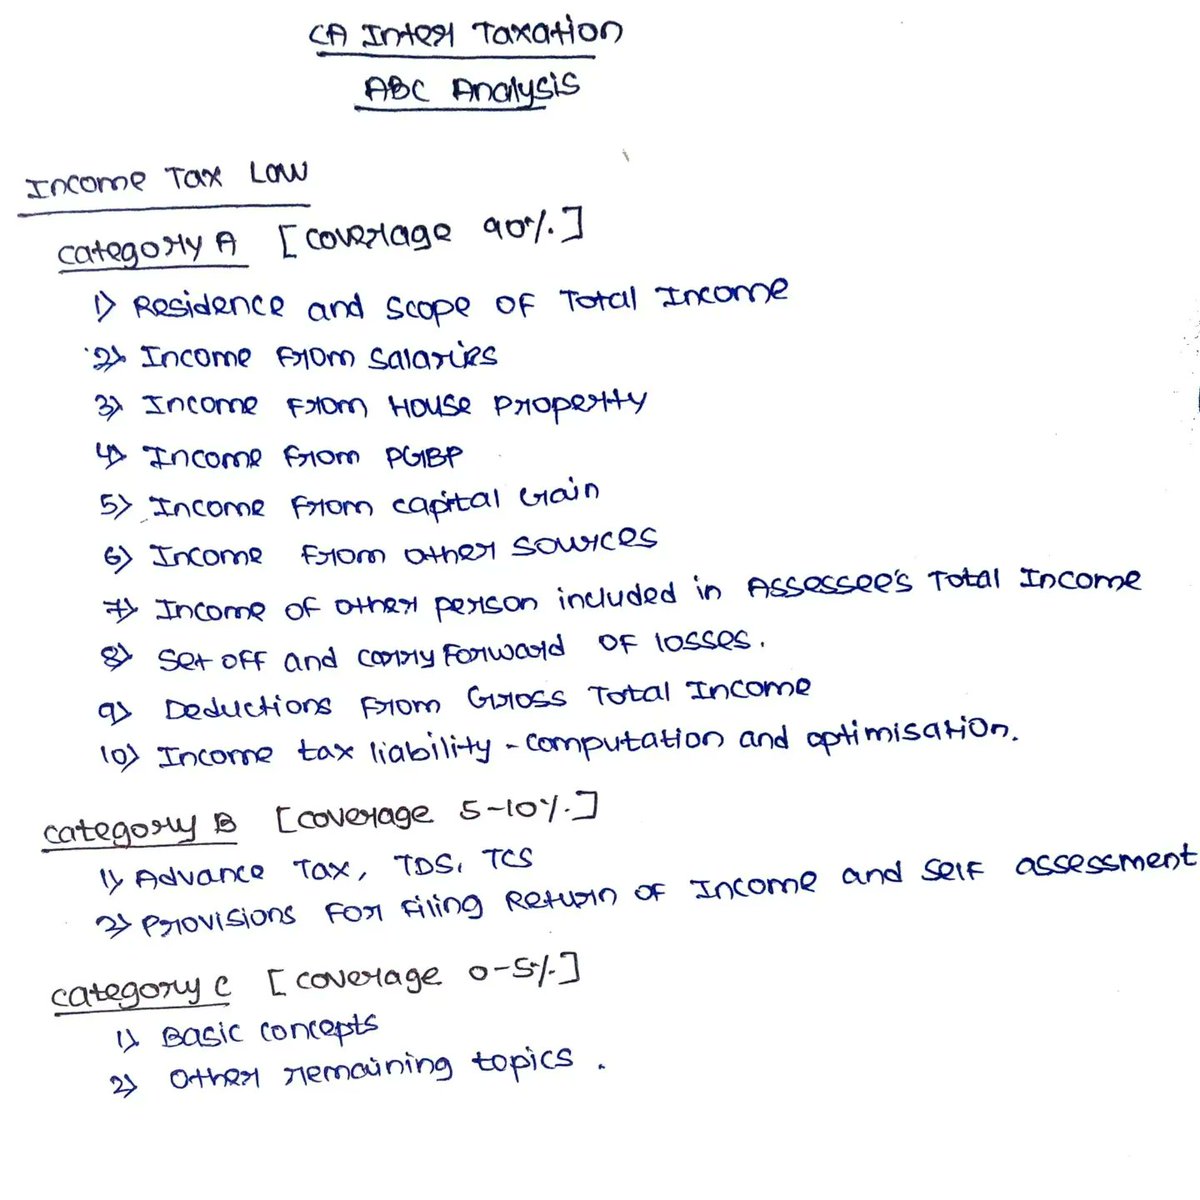 CA Inter Taxation
ABC Analysis
Income Tax Law
Category A [Coverage 90%]
1) Residence and Scope of Total Income
2) Income From Salaries
3) Income From House Property
4) Income From PGBP
5) Income From Capital Gain
6) Income From other Sources
7) Income of other person included in Assessee's Total Income
8) Set off and carry Forward of losses.
9) Deductions From Gross Total Income
10) Income tax liability - computation and optimisation.
Category B [Coverage 5-10%]
1) Advance Tax, TDS, TCS
2) Provisions For Filing Return of Income and Self assessment
Category C [Coverage 0-5%]
1) Basic Concepts
2) Other remaining topics.